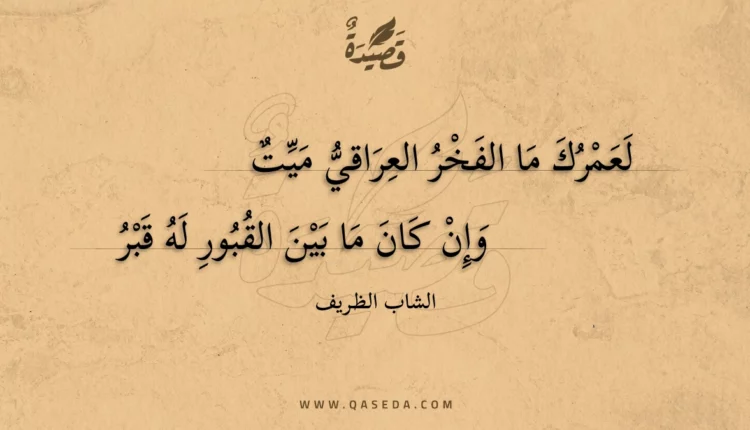 قَصِيْدَةٌ
لَعَمْرُكَ مَا الفَخْرُ العِرَاقيُّ مَيِّتٌ
وَإِنْ كَانَ مَا بَيْنَ القُبُورِ لَهُ قَبْرُ
الشاب الظريف
WWW.QASEDA.COM